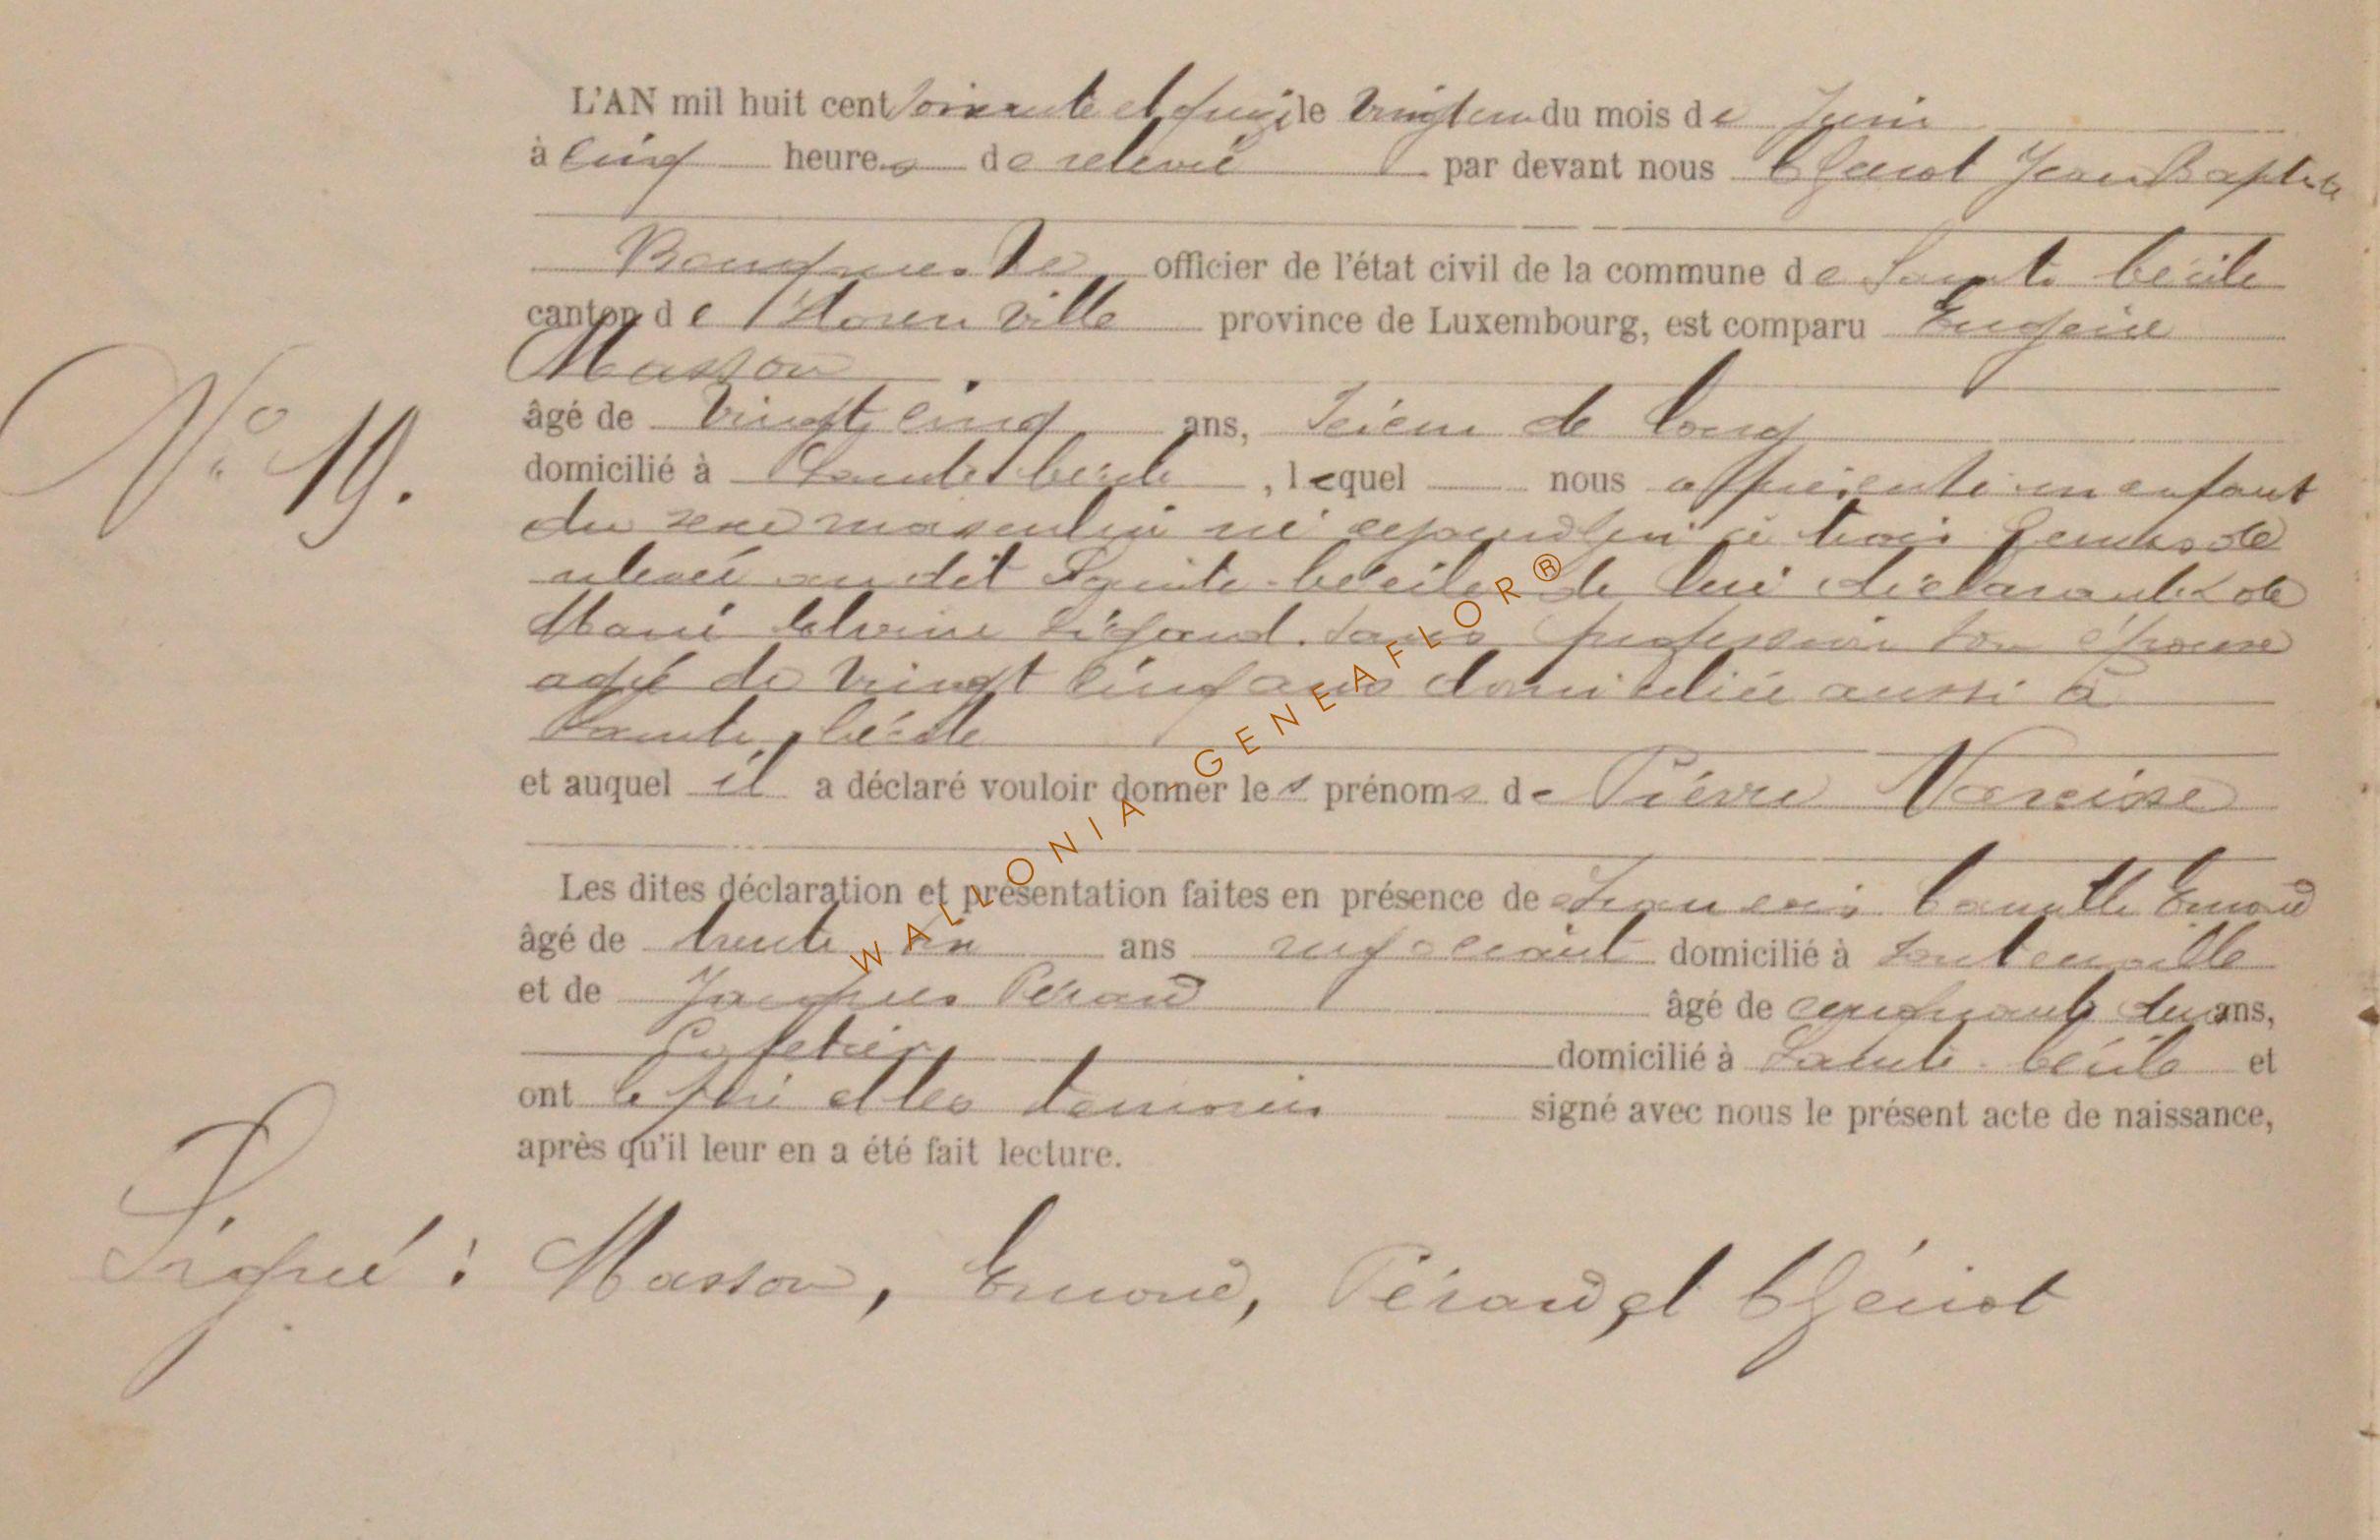 L'AN mil huit cent soixante et quinze le vingt un du mois de Juin
à cinq heures de relevé par devant nous Jean Baptiste
officier de l'état civil de la commune de Sainte Cécile
canton de Florenville province de Luxembourg, est comparu Eugène
Masson
N° 19.
âgé de vingt cinq ans, Scieur de Long
domicilié à Sainte Cécile, lequel nous a présenté un enfant
du sexe masculin né aujourd'hui à trois heures de
relevé au dit Sainte-Cécile de lui déclarant & de
Marie sans profession son épouse
agée de vingt cinq ans domiciliée aussi à
Sainte Cécile
et auquel il a déclaré vouloir donner les prénoms de Pierre Narcisse
Les dites déclaration et présentation faites en présence de Camille Emond
âgé de trente un ans négociant domicilié à Fontenoille
et de Jacques Pérard âgé de cinquante deux ans,
domicilié à Sainte-Cécile et
ont le père et les témoins signé avec nous le présent acte de naissance,
après qu'il leur en a été fait lecture.
Signé : Masson, Emond, Pérard, et
WALLONIA - GENEAFLOR®